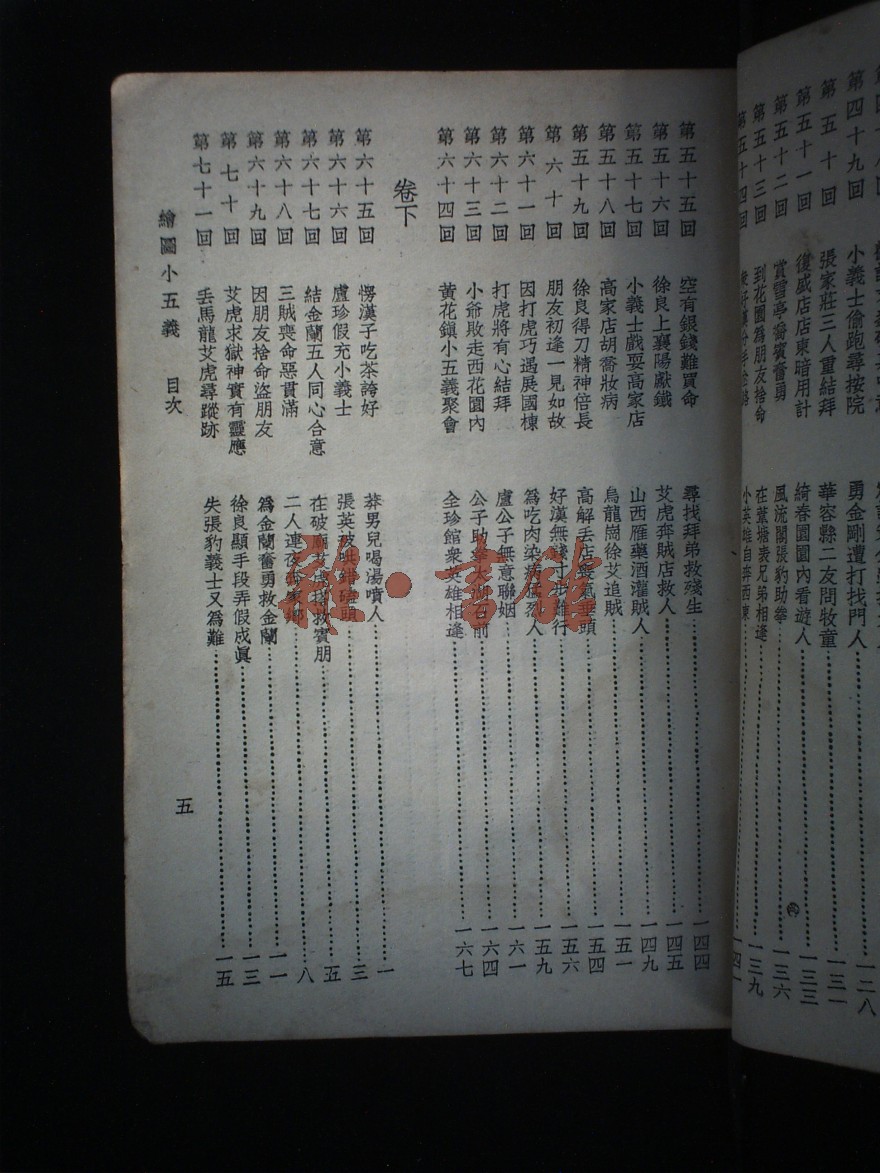 第四十九回　小義士偷跑尋按院　勇金剛遭打找門人　一二八
第五十回　張家莊三人重結拜　華容縣二友問牧童　一三一
第五十一回　復盛店店東暗用計　綺春園園內看遊人　一三三
第五十二回　賞雪亭喬賓奮勇　風流閣張豹助拳　一三六
第五十三回　到花園爲朋友捨命　在葦塘表兄弟相逢　一三九
第五十四回　小英雄自奔西東　一四一
第五十五回　空有銀錢難買命　尋找拜弟救殘生　一四四
第五十六回　徐良上襄陽獻鐵　艾虎奔賊店救人　一四五
第五十七回　小義士戲耍高家店　山西雁藥酒灌賊人　一四九
第五十八回　高家店胡喬妝病　烏龍崗徐艾追賊　一五一
第五十九回　徐良得刀精神倍長　高解丟店喪氣垂頭　一五四
第六十回　朋友初逢一見如故　好漢無錢寸步難行　一五六
第六十一回　因打虎巧遇展國棟　爲吃肉染病猛烈人　一五九
第六十二回　打虎將有心結拜　盧公子無意聯姻　一六一
第六十三回　小爺敗走西花園內　公子助拳太湖石前　一六四
第六十四回　黃花鎮小五義聚會　全珍館衆英雄相逢　一六七
卷下
第六十五回　愣漢子吃茶誇好　莽男兒喝湯噴人　一
第六十六回　盧珍假充小義士　張英被哄錯磕頭　三
第六十七回　結金蘭五人同心合意　在破廟艾虎搭救賓朋　五
第六十八回　三賊喪命惡貫滿　二人連夜奔家鄉　八
第六十九回　因朋友捨命盜朋友　爲金蘭奮勇救金蘭　一一
第七十回　艾虎求獄神實有靈應　徐良顯手段弄假成眞　一三
第七十一回　丟馬龍艾虎尋蹤跡　失張豹義士又爲難　一五
繪圖小五義　目次　五
雅·書館